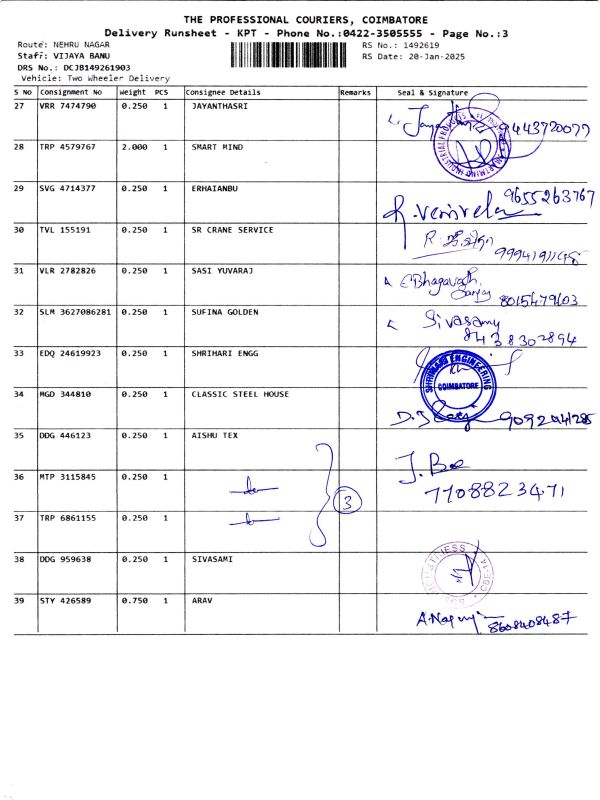 THE PROFESSIONAL COURIERS, COIMBATORE
Delivery Runsheet - KPT - Phone No.:0422-3505555 - Page No.:3
Route: NEHRU NAGAR
RS No.: 1492619
Staff: VIJAYA BANU
RS Date: 20-Jan-2025
DRS No.: DCJB149261903
Vehicle: Two Wheeler Delivery
S No Consignment No Weight PCS Consignee Details Remarks Seal & Signature
27 VRR 7474790 0.250 1 JAYANTHASRI
9443720077
28 TRP 4579767 2.000 1 SMART MIND
29 SVG 4714377 0.250 1 ERHAIANBU 9655263767
30 TVL 155191 0.250 1 SR CRANE SERVICE
31 VLR 2782826 0.250 1 SASI YUVARAJ
8015479603
32 SLM 3627086281 0.250 1 SUFINA GOLDEN Sivasamy
8438302894
33 EDQ 24619923 0.250 1 SHRIHARI ENGG
SHRIHARI ENGINEERING
COIMBATORE
34 MGD 344810 0.250 1 CLASSIC STEEL HOUSE
35 DDG 446123 0.250 1 AISHU TEX
36 MTP 3115845 0.250 1
7708823471
3
37 TRP 6861155 0.250 1
38 DDG 959638 0.250 1 SIVASAMI
39 STY 426589 0.750 1 ARAV
8608408487